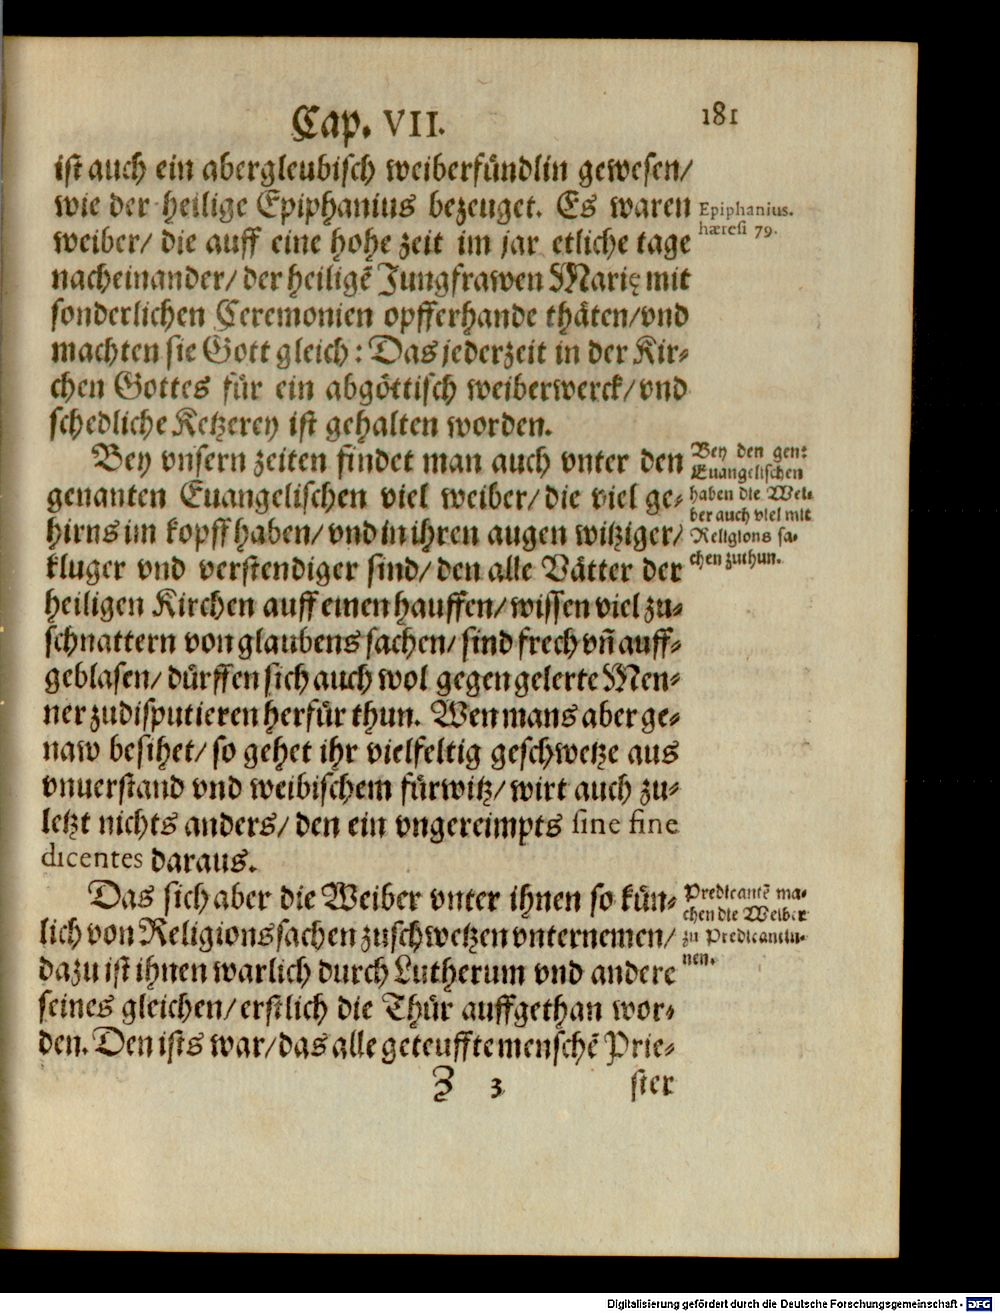 Cap. VII.
181
ist auch ein abergleubisch weiberfündlin gewesen/
wie der heilige Epiphanius bezeuget. Es waren
weiber/ die auff eine hohe zeit im jar etliche tage
nacheinander/ der heiligẽ Jungfrawen Marię mit
sonderlichen Ceremonien opfferhande thäten/ vnd
machten sie Gott gleich: Das jederzeit in der Kir-
chen Gottes für ein abgöttisch weiberwerck/ vnd
schedliche Ketzerey ist gehalten worden.
Epiphanius.
hæresi 79.
Bey vnsern zeiten findet man auch vnter den
genanten Euangelischen viel weiber/ die viel ge-
hirns im kopff haben/ vnd in ihren augen witziger/
kluger vnd verstendiger sind/ den alle Vätter der
heiligen Kirchen auff einen hauffen/ wissen viel zu-
schnattern von glaubens sachen/ sind frech vñ auff-
geblasen/ dürffen sich auch wol gegen gelerte Men-
ner zudisputieren herfür thun. Wen mans aber ge-
naw besihet/ so gehet ihr vielfeltig geschwetze aus
vnuerstand vnd weibischem fürwitz/ wirt auch zu-
letzt nichts anders/ den ein vngereimpts sine fine
dicentes daraus.
Bey den gen:
Euangelischen
haben die Wei-
ber auch viel mit
Religions sa-
chen zuthun.
Das sich aber die Weiber vnter ihnen so kün-
lich von Religions sachen zuschwetzen vnternemen/
dazu ist ihnen warlich durch Lutherum vnd andere
seines gleichen/ erstlich die Thür auffgethan wor-
den. Den ists war/ das alle geteuffte menschẽ Prie-
Predicantẽ ma-
chen die Weiber
zu Predicantin-
nen.
Z 3
ster
Digitalisierung gefördert durch die Deutsche Forschungsgemeinschaft - DFG